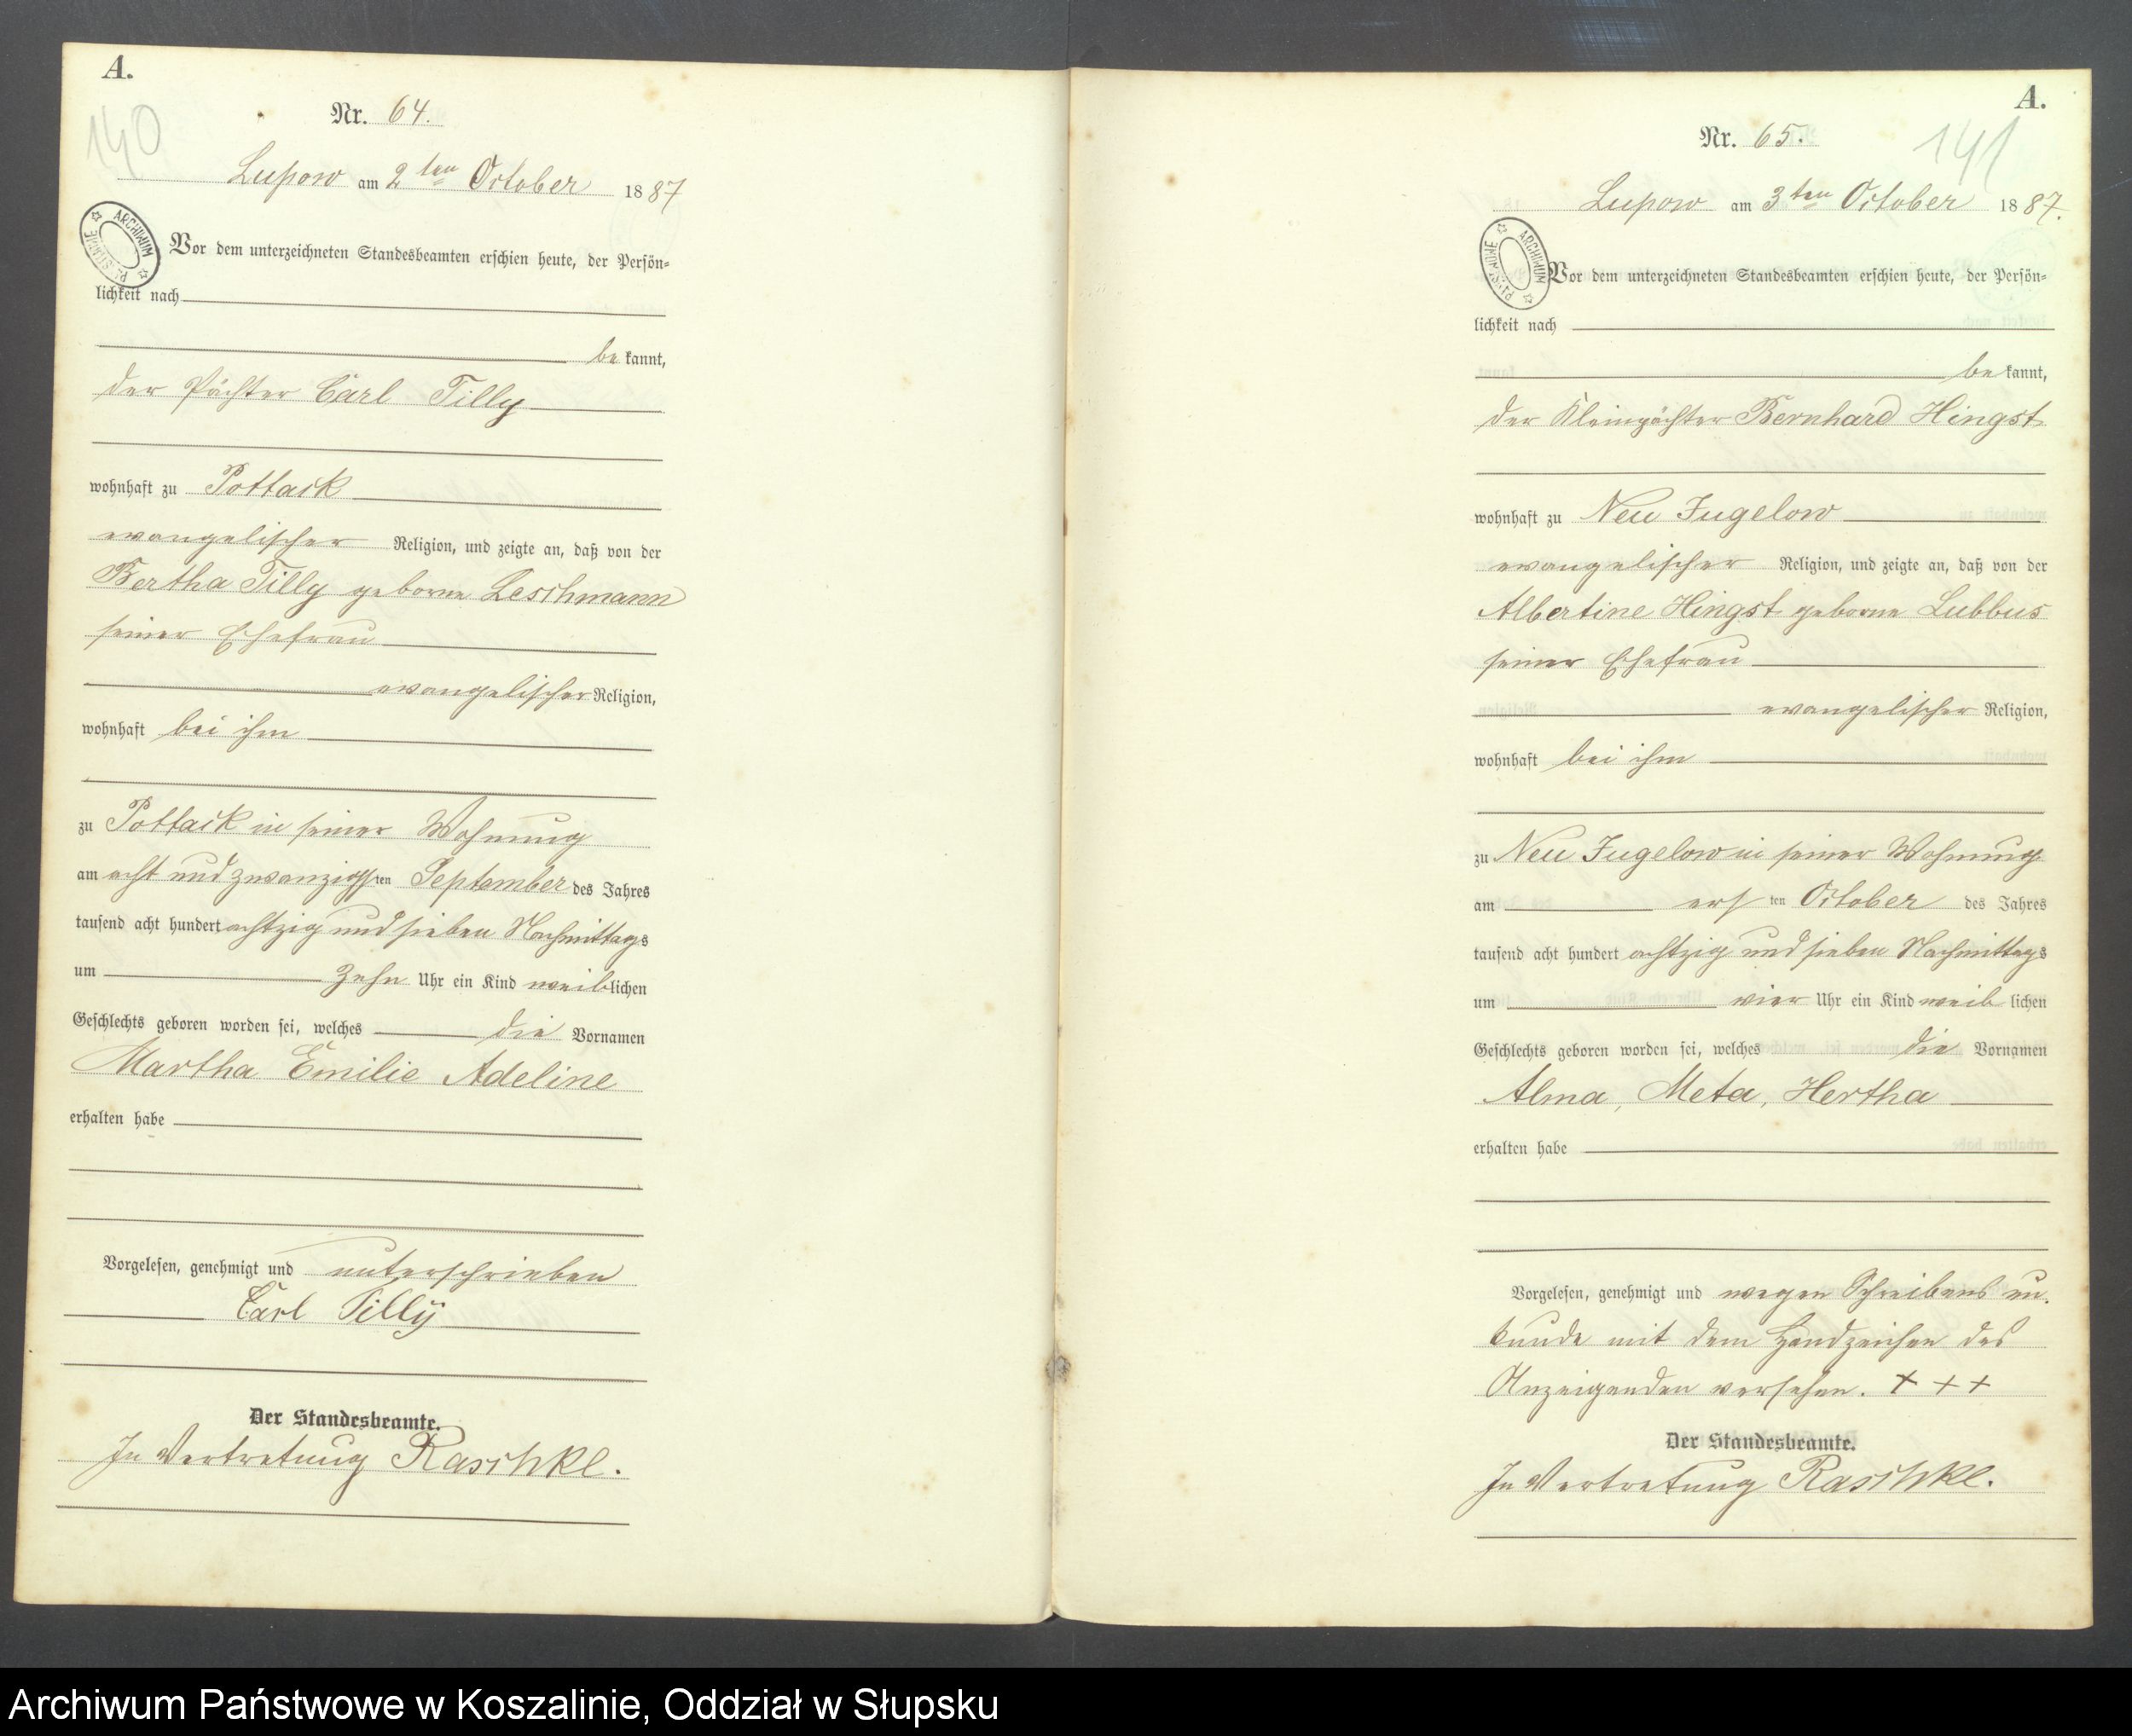 A.
140
Nr. 64.
Lupow am 2ten October 1887
ARCHIWUM
Vor dem unterzeichneten Standesbeamten erschien heute, der Persön-
lichkeit nach
be kannt,
der Pächter Carl Tilly
wohnhaft zu Pottack
evangelischer Religion, und zeigte an, daß von der
Bertha Tilly geborne Leschmann
seiner Ehefrau
evangelischer Religion,
wohnhaft bei ihm
zu Pottack in seiner Wohnung
am acht und zwanzigsten September des Jahres
tausend acht hundert achtzig und sieben Nachmittags
um zehn Uhr ein Kind weiblichen
Geschlechts geboren worden sei, welches die Vornamen
Martha Emilie Adeline
erhalten habe
Vorgelesen, genehmigt und unterschrieben
Carl Tilly
Der Standesbeamte.
In Vertretung Raschke.
A.
141
Nr. 65.
Lupow am 3ten October 1887.
ARCHIWUM
Vor dem unterzeichneten Standesbeamten erschien heute, der Persön-
lichkeit nach
be kannt,
der Kleinpächter Bernhard Hingst
wohnhaft zu Neu Jugelow
evangelischer Religion, und zeigte an, daß von der
Albertine Hingst geborne Lubbus
seiner Ehefrau
evangelischer Religion,
wohnhaft bei ihm
zu Neu Jugelow in seiner Wohnung
am ersten October des Jahres
tausend acht hundert achtzig und sieben Nachmittags
um vier Uhr ein Kind weib lichen
Geschlechts geboren worden sei, welches die Vornamen
Alma, Meta, Hertha
erhalten habe
Vorgelesen, genehmigt und wegen Schreibens un-
kunde mit dem Handzeichen des
Anzeigenden versehen. + + +
Der Standesbeamte.
In Vertretung Raschke.
Archiwum Państwowe w Koszalinie, Oddział w Słupsku